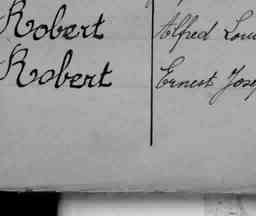 Robert Alfred Lou
Robert Ernest Jose